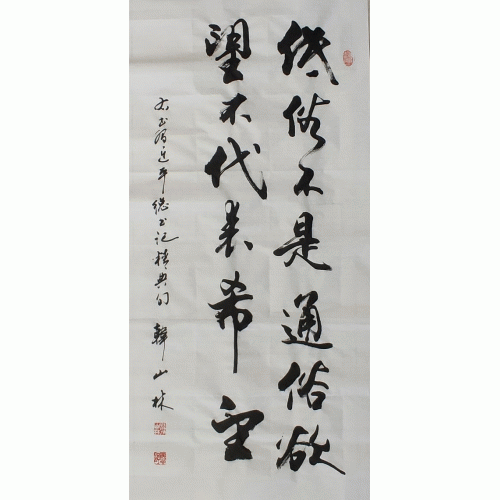 低俗不是通俗欲
望不代表希望
右书习近平总书记精典句 韩山林